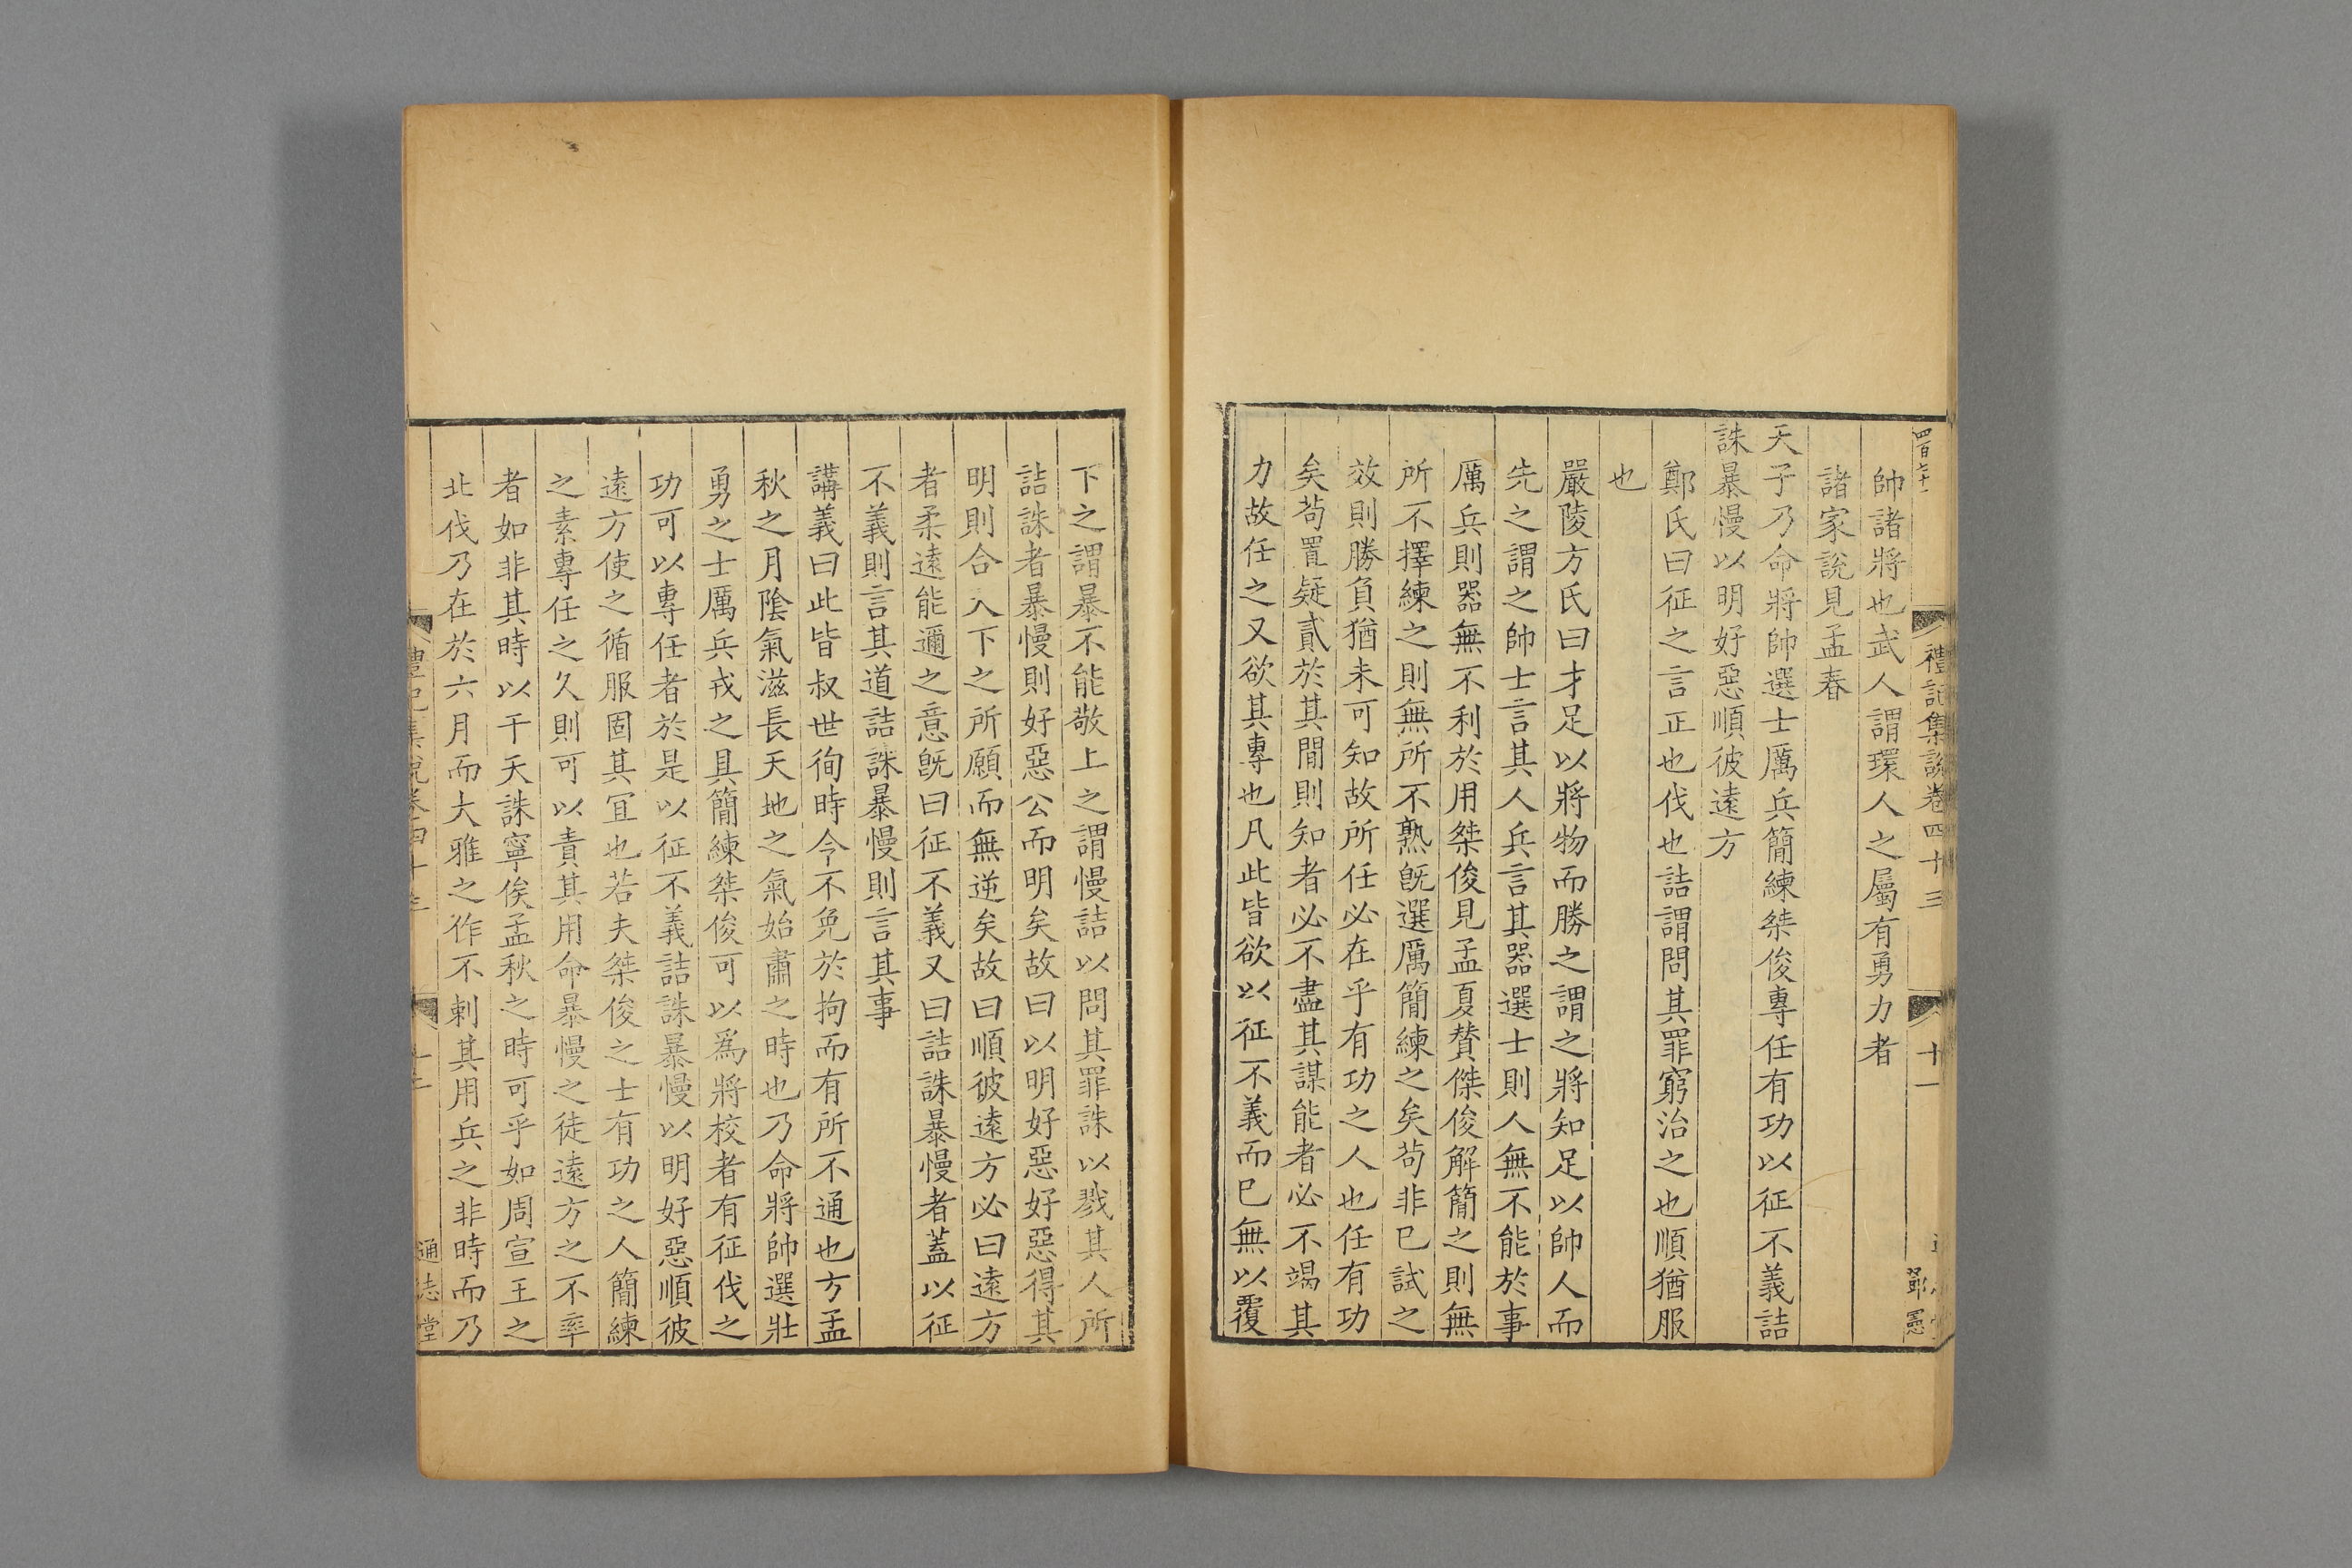 四百七十一
禮記集說卷四十三
十一
鄧憲
帥諸將也武人謂環人之屬有勇力者
諸家說見孟春
天子乃命將帥選士厲兵簡練桀俊專任有功以征不義詰
誅暴慢以明好惡順彼遠方
鄭氏曰征之言正也伐也詰謂問其罪窮治之也順猶服
也
嚴陵方氏曰才足以將物而勝之謂之將知足以帥人而
先之謂之帥士言其人兵言其器選士則人無不能於事
厲兵則器無不利於用桀俊見孟夏賛傑俊解簡之則無
所不擇練之則無所不熟旣選厲簡練之矣苟非已試之
效則勝負猶未可知故所任必在乎有功之人也任有功
矣苟置疑貳於其間則知者必不盡其謀能者必不竭其
力故任之又欲其專也凡此皆欲以征不義而已無以覆
下之謂暴不能敬上之謂慢詰以問其罪誅以戮其人所
詰誅者暴慢則好惡公而明矣故曰以明好惡好惡得其
明則合乆下之所願而無逆矣故曰順彼遠方必曰遠方
者柔遠能邇之意旣曰征不義又曰詰誅暴慢者蓋以征
不義則言其道詰誅暴慢則言其事
講義曰此皆叔世徇時令不免於拘而有所不通也方孟
秋之月陰氣滋長天地之氣始肅之時也乃命將帥選壯
勇之士厲兵戎之具簡練桀俊可以爲將校者有征伐之
功可以專任者於是以征不義詰誅暴慢以明好惡順彼
遠方使之循服固其冝也若夫桀俊之士有功之人簡練
之素專任之久則可以責其用命暴慢之徒遠方之不率
者如非其時以干天誅寧俟孟秋之時可乎如周宣王之
北伐乃在於六月而大雅之作不刺其用兵之非時而乃
禮記集說卷四十三
通志堂